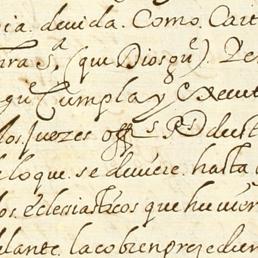 cia. devida. Como. Cart
tra S.ª (que Dios gu.e). Yen
gu Cumpla y execut
los. Juezes off.s R.s deest
lo que. se deviere. hasta
os. eclesiasticos que huvier
elante. la cobren prozedien